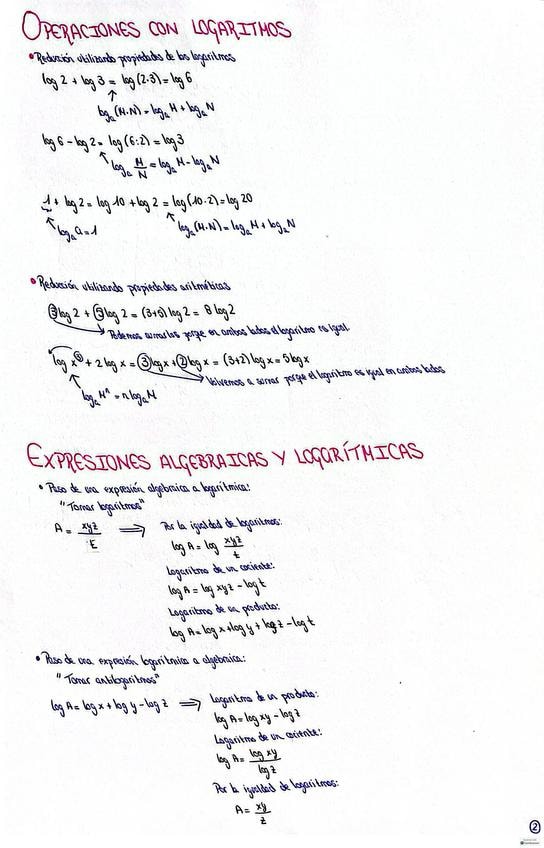 OPERACIONES CON LOGARITMOS
• Reducción utilizando propiedades de los logaritmos
log 2 + log 3 = log (2·3) = log 6
log_a (M·N) = log_a M + log_a N
log 6 - log 2 = log (6:2) = log 3
log_a M/N = log_a M - log_a N
1 + log 2 = log 10 + log 2 = log (10·2) = log 20
log_a a = 1
log_a (M·N) = log_a M + log_a N
• Reducción utilizando propiedades aritméticas
3 log 2 + 5 log 2 = (3+5) log 2 = 8 log 2
Podemos sumarlos porque en ambos lados el logaritmo es igual
log x³ + 2 log x = 3 log x + 2 log x = (3+2) log x = 5 log x
Volvemos a sumar porque el logaritmo es igual en ambos lados
log_a Mⁿ = n log_a M
EXPRESIONES ALGEBRAICAS Y LOGARÍTMICAS
• Paso de una expresión algebraica a logarítmica:
"Tomar logaritmos"
A = xyz/t ⟹ Por la igualdad de logaritmos:
log A = log xyz/t
Logaritmo de un cociente:
log A = log xyz - log t
Logaritmo de un producto:
log A = log x + log y + log z - log t
• Paso de una expresión logarítmica a algebraica:
"Tomar antilogaritmos"
log A = log x + log y - log z ⟹ Logaritmo de un producto:
log A = log xy - log z
Logaritmo de un cociente:
log A = log xy/log z
Por la igualdad de logaritmos:
A = xy/z
2